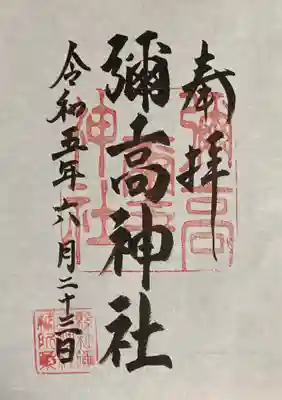 奉拝
彌高神社
令和五年六月二十三日
彌高神社